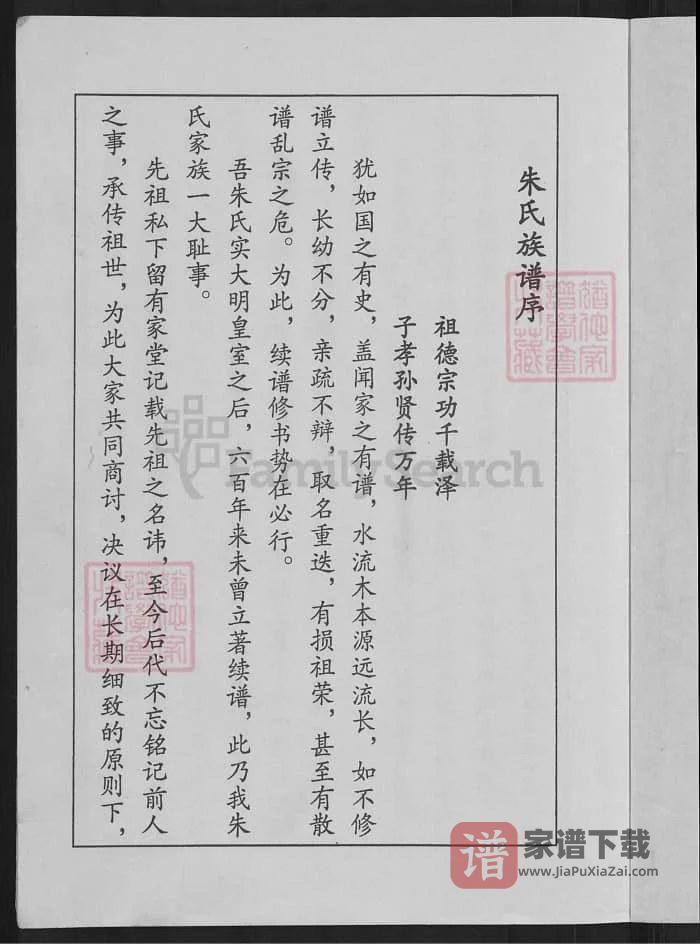 朱氏族谱序
祖德宗功千载泽
子孝孙贤传万年
犹如国之有史，盖闻家之有谱，水流木本源远流长，如不修
谱立传，长幼不分，亲疏不辩，取名重迭，有损祖荣，甚至有散
谱乱宗之危。为此，续谱修书势在必行。
吾朱氏实大明皇室之后，六百年来未曾立著续谱，此乃我朱
氏家族一大耻事。
先祖私下留有家堂记载先祖之名讳，至今后代不忘铭记前人
之事，承传祖世，为此大家共同商讨，决议在长期细致的原则下，
FamilySearch
谱
家谱下载
www.JiaPuXiaZai.com